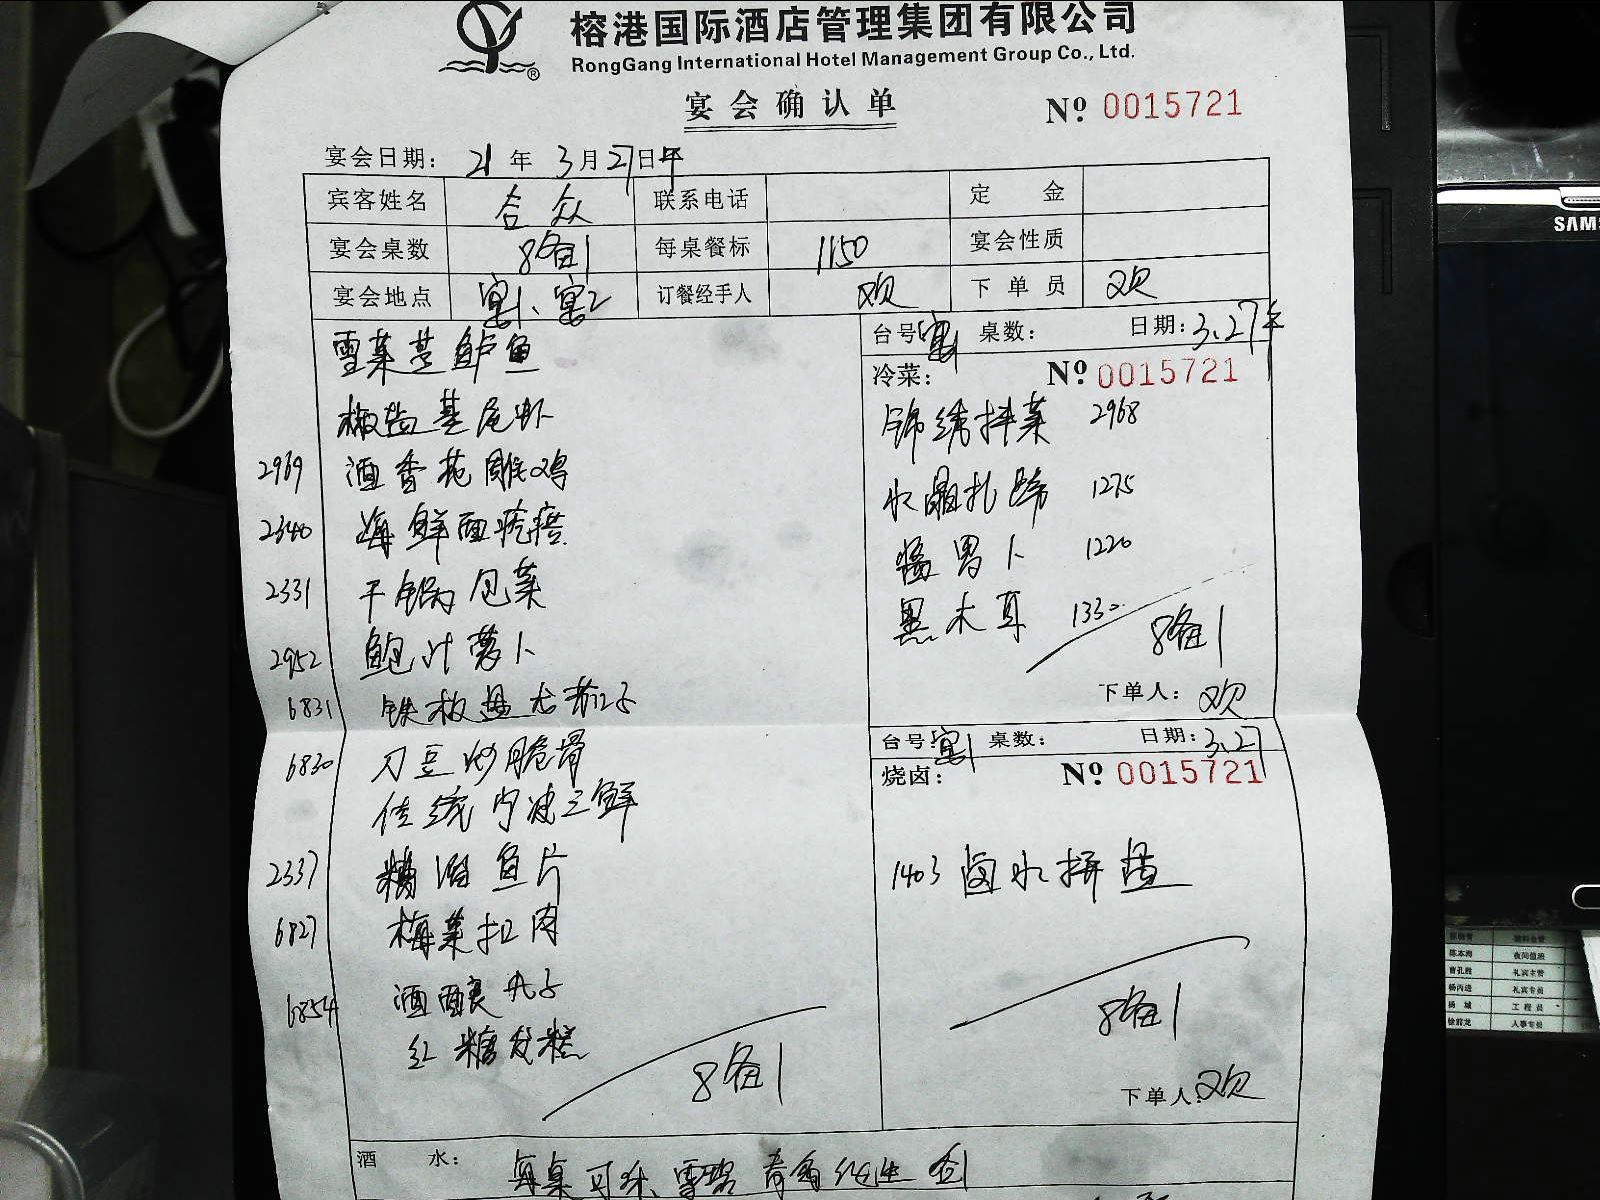 榕港国际酒店管理集团有限公司
RongGang International Hotel Management Group Co., Ltd.
®
宴会确认单 Nº 0015721
宴会日期: 21年 3月27日午
宾客姓名 合众 联系电话 定 金
宴会桌数 8备1 每桌餐标 1150 宴会性质
宴会地点 宴1、宴2 订餐经手人 欢 下单员 欢
台号: 宴1 桌数: 日期: 3.27午
冷菜: Nº 0015721
锦绣拌菜 2968
水晶扎蹄 1275
酱萝卜 1220
黑木耳 1330
8备1
下单人: 欢
台号: 宴1 桌数: 日期: 3.27
烧卤: Nº 0015721
1403 卤水拼盘
8备1
下单人: 欢
雪菜蒸鲈鱼
椒盐基尾虾
2969 酒香花雕鸡
2340 海鲜面疙瘩
2331 干锅包菜
2952 鲍汁萝卜
6831 铁板盘龙茄子
6830 刀豆炒脆骨
传统宁波三鲜
2337 糟溜鱼片
6827 梅菜扣肉
6854 酒酿丸子
红糖发糕
8备1
酒 水: 每桌可乐、雪碧 青岛纯生
SAMS
夜间值班
礼宾主管
礼宾专员
工程员
人事专员